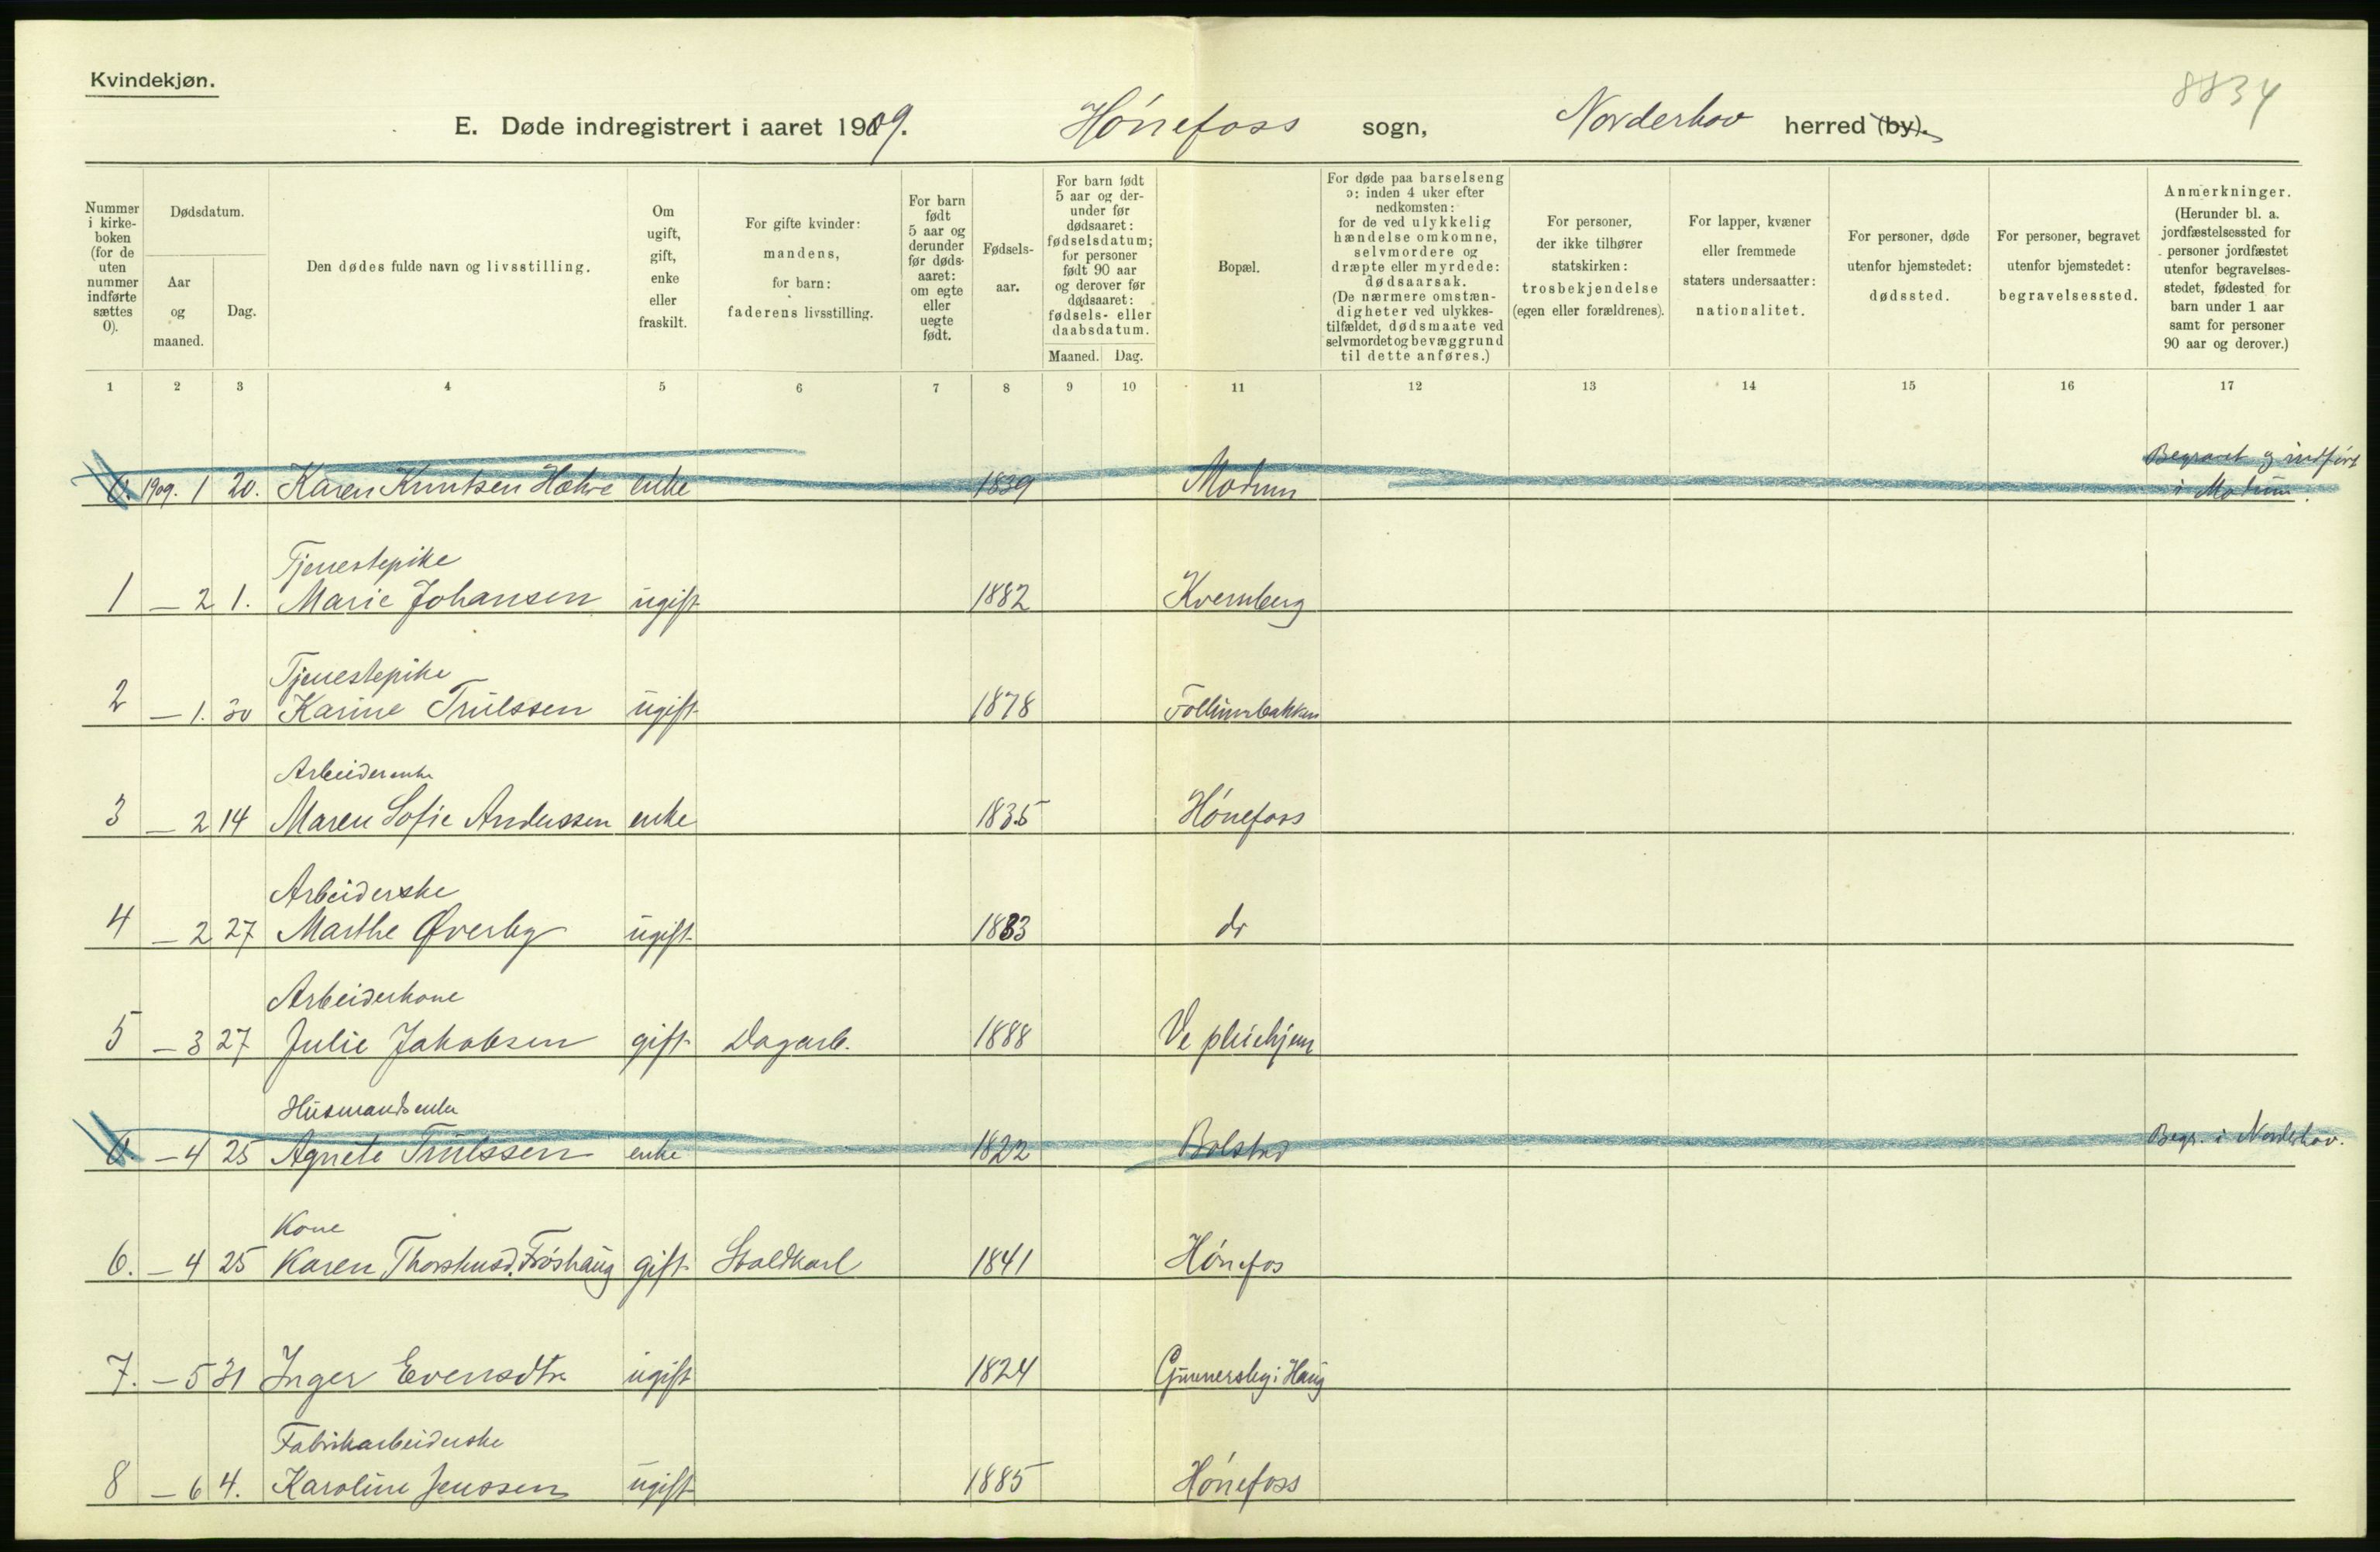 Kvindekjøn.
8834
E. Døde indregistrert i aaret 1909. Hónefoss sogn, Norderhov herred (by).
Nummer i kirke-boken (for de uten nummer indførte sættes 0).
Dødsdatum.
Aar og maaned.
Dag.
Den dødes fulde navn og livsstilling.
Om ugift, gift, enke eller fraskilt.
For gifte kvinder: mandens, for barn: faderens livsstilling.
For barn født 5 aar og derunder før døds-aaret: om egte eller uegte født.
Fødsels-aar.
For barn født 5 aar og der-under før dødsaaret: fødselsdatum; for personer født 90 aar og derover før dødsaaret: fødsels- eller daabsdatum.
Maaned. Dag.
Bopæl.
For døde paa barselseng ɔ: inden 4 uker efter nedkomsten: for de ved ulykkelig hændelse omkomne, selvmordere og dræpte eller myrdede: dødsaarsak. (De nærmere omstæn-digheter ved ulykkes-tilfældet, dødsmaate ved selvmordet og bevæggrund til dette anføres.)
For personer, der ikke tilhører statskirken: trosbekjendelse (egen eller forældrenes).
For lapper, kvæner eller fremmede staters undersaatter: nationalitet.
For personer, døde utenfor hjemstedet: dødssted.
For personer, begravet utenfor hjemstedet: begravelsessted.
Anmerkninger. (Herunder bl. a. jordfæstelsessted for personer jordfæstet utenfor begravelses-stedet, fødested for barn under 1 aar samt for personer 90 aar og derover.)
1 2 3 4 5 6 7 8 9 10 11 12 13 14 15 16 17
Begravet og indført
0. 1909. 1 20. Karen Knutsen Hæhre enke 1839 Modum i Modum.
Tjenestepike
1 — 2 1. Marie Johansen ugift 1882 Kvernberg
Tjenestepike
2 — 1. 30 Karine Trulssen ugift 1878 Follumbakken
Arbeiderenke
3 — 2 14 Maren Sofie Anderssen enke 1835 Hónefoss
Arbeiderske
4 — 2 27 Marthe Øverby ugift 1883 do
Arbeiderkone
5 — 3 27 Julie Jakobsen gift Dagarb. 1888 Ve pleiehjem
Husmandsenke
0. — 4 25 Agnete Trulssen enke 1822 Bolstad Begr. i Norderhov.
Kone
6. — 4 25 Karen Thorshusd. Frøshaug gift Staldkarl 1841 Hónefos
7. — 5 31 Inger Evensdtr ugift 1824 Gunnersby i Haug
Fabrikarbeiderske
8 — 6 4. Karoline Jenssen ugift 1885 Hónefoss